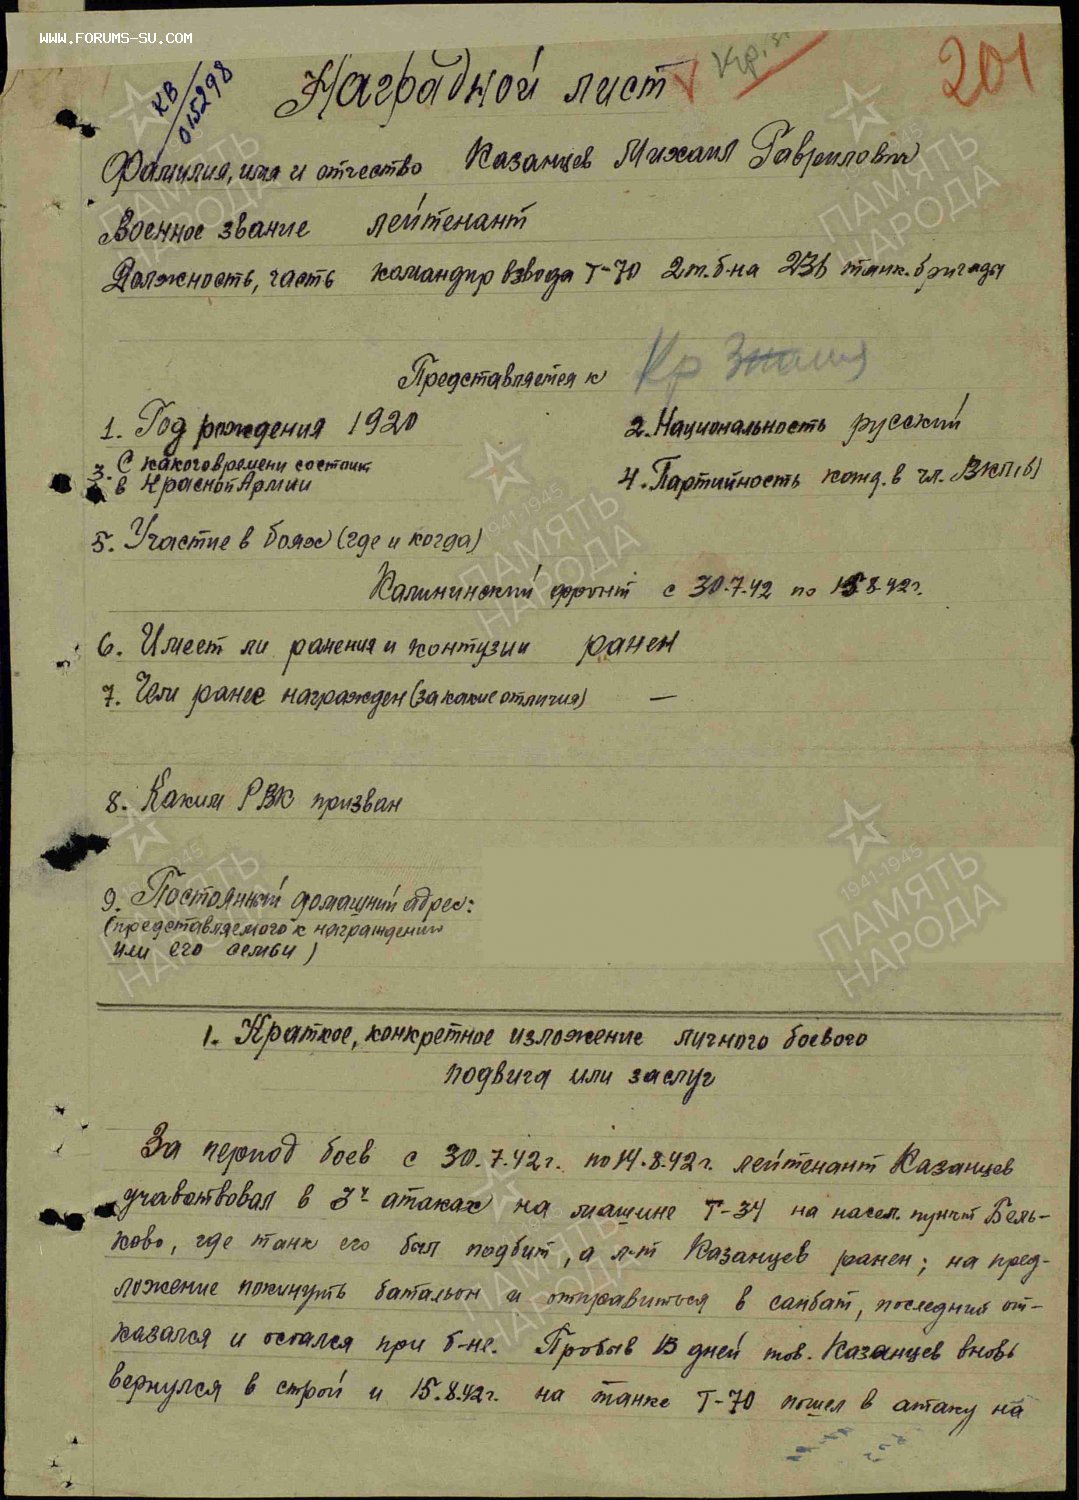 WWW.FORUMS-SU.COM
КВ
015298
Наградной лист
201
Фамилия, имя и отчество Казанцев Михаил Гаврилович
Военное звание лейтенант
Должность, часть командир взвода Т-70 2 т. б-на 236 танк. бригады
Представляется к Кр Знамя
1. Год рождения 1920
2. Национальность русский
3. С какого времени состоит
в Красной Армии
4. Партийность канд. в чл. ВКП(б)
5. Участие в боях (где и когда)
Калининский фронт с 30.7.42 по 15.8.42г.
6. Имеет ли ранения и контузии ранен
7. Чем ранее награжден (за какие отличия) —
8. Каким РВК призван
9. Постоянный домашний адрес:
(представляемого к награждению
или его семьи)
1. Краткое, конкретное изложение личного боевого
подвига или заслуг
За период боев с 30.7.42г. по 14.8.42г. лейтенант Казанцев
учавствовал в 3х атаках на машине Т-34 на насел. пункт Бель-
ково, где танк его был подбит, а л-т Казанцев ранен; на пред-
ложение покинуть батальон и отправиться в санбат, последний от-
казался и остался при б-не. Пробыв 13 дней тов. Казанцев вновь
вернулся в строй и 15.8.42г. на танке Т-70 пошел в атаку на
1941-1945
ПАМЯТЬ
НАРОДА